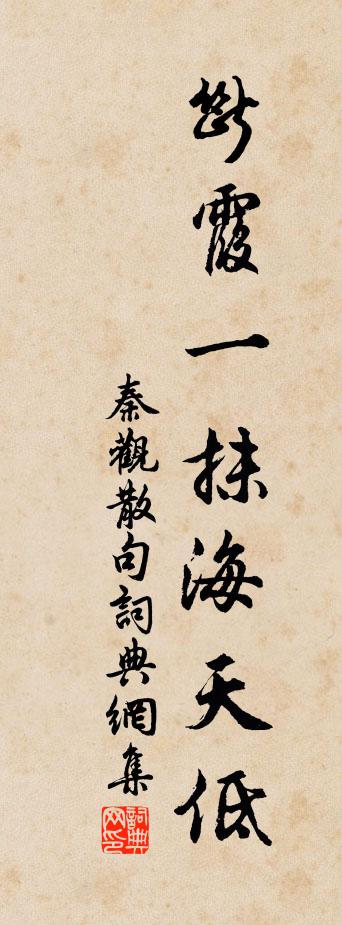 斷霞一抹海天低
秦觀散句詞典網集
詞典网印